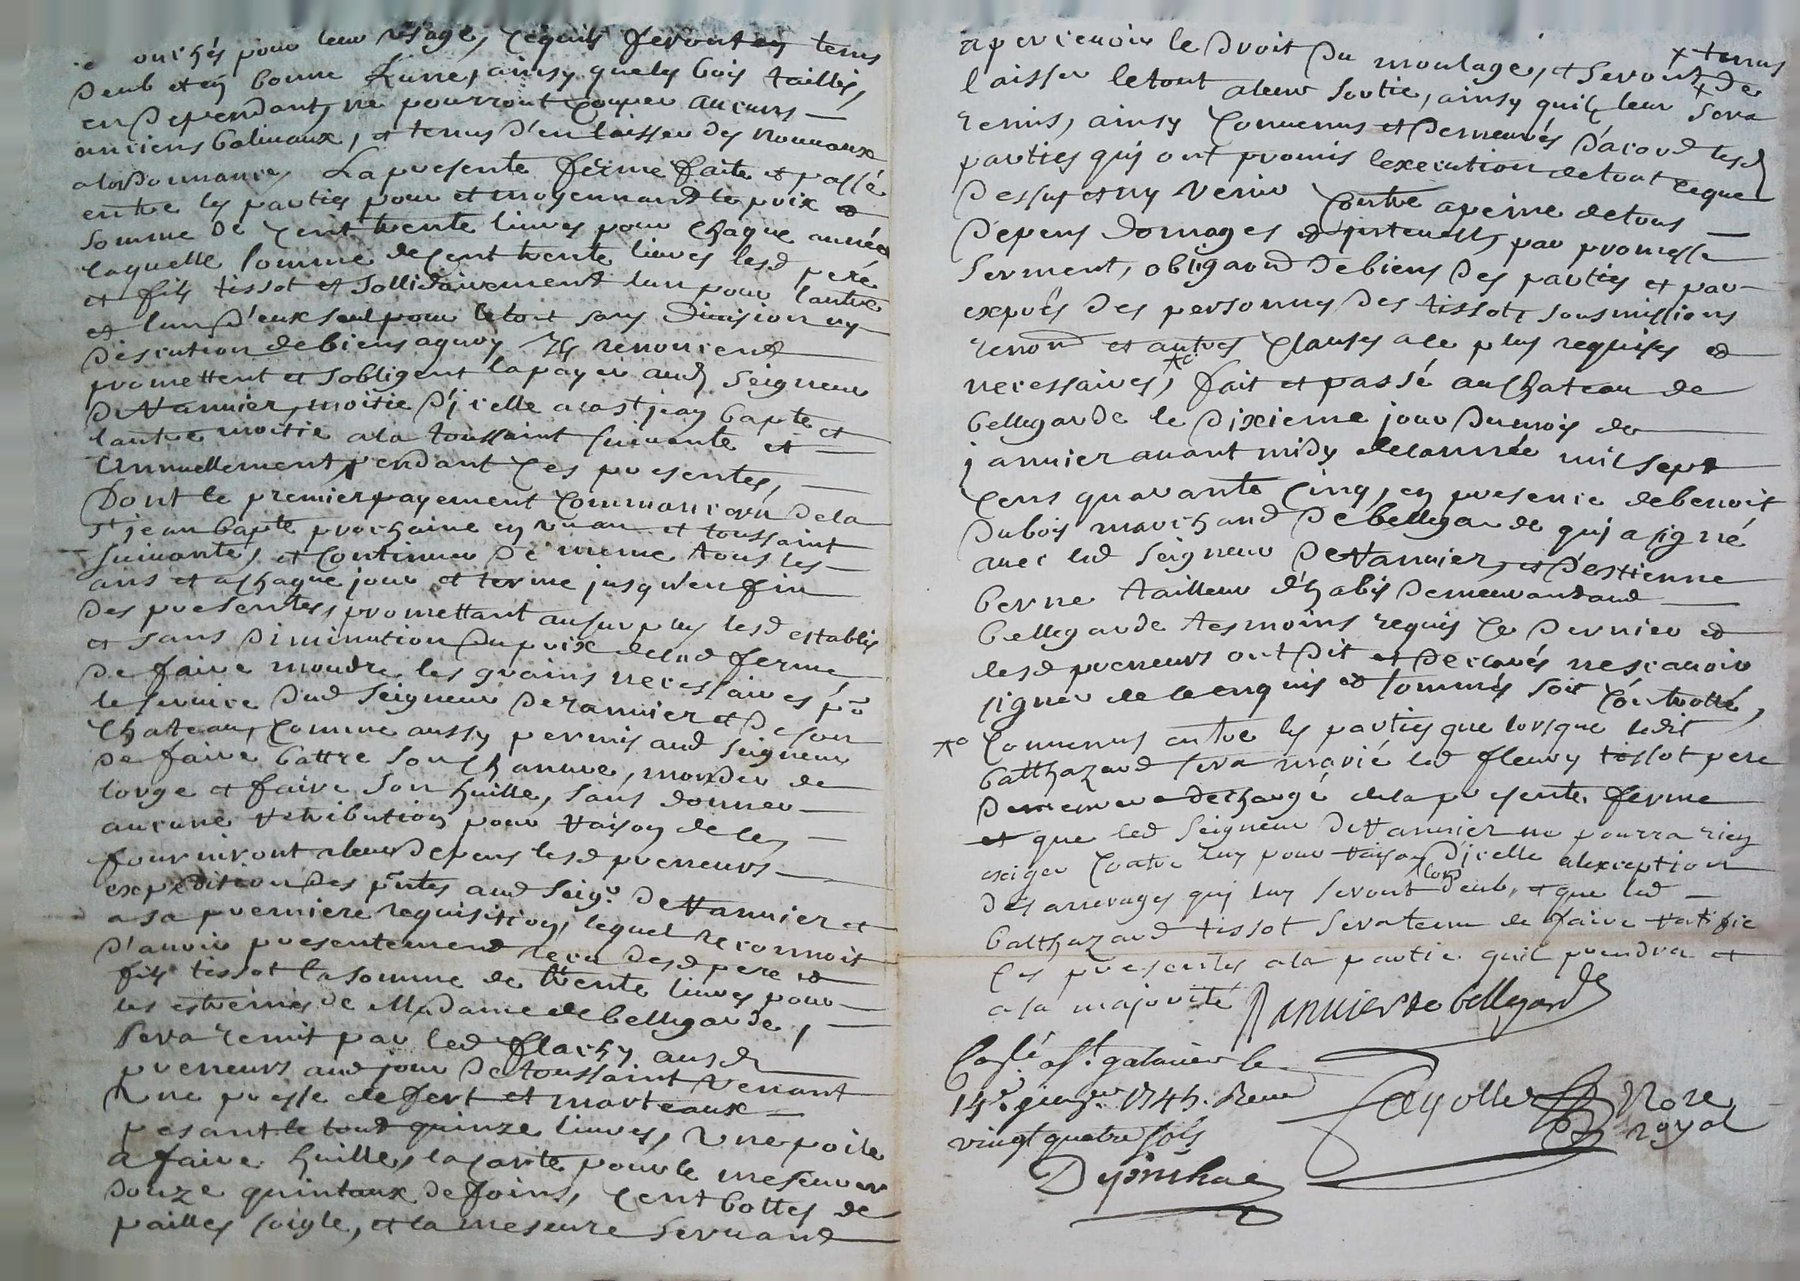 ouchés pour leur usage, ce quils feront en tems
deub et en bonne Lune, ainsy que les bois taillis,
en dependant, ne pourront couper aucuns
anciens baliuaux, et tenus d'en laisser des nouueaux
a lordonnance, La presente ferme faite et passé
entre les parties pour et moyennand le prix et
somme de cent trente liures pour chaque année
laquelle somme de cent trente liures lesd peré
et fils tissot et sollidairement lun pour lautre
et lun d'eux seul pour le tout sans diuision ny
discution de biens aquoy Ils renoncent
promettent et sobligent la payer aud Seigneur
De Rannier, moitie d'jcelle a la st jean bapte et
lautre moitie a la toussaint suiuante et
annuellement pendant ces presentes,
Dont le premier payement commancera de la
st jean bapte prochaine en un an et toussaint
suiuante, et continuer de meme tous les
ans et a chaque jour et terme jusqu'en fin
des presentes, promettant au surplus lesd establis
et sans diminution du prix de lad ferme
de faire moudre les grains necessaires pr
le seruice dud Seigneur De rannier et de son
Chateau, comme aussy permis aud Seigneur
de faire battre son chanure, monder de
lorge et faire son huille, sans donner
aucune retribution pour raison de ce,
fourniront a leur depens lesd preneurs
expedition des pntes aud Seigr De Rannier et
a sa premiere requisition, lequel reconnoit
d'auoir presentement receu desd pere et
fils tissot la somme de trente liures pour
les estreines de Madame de bellegarde,
sera remit par led flachy ausd
preneurs aud jour de toussaint venant
Une presse de fert et marteaux
pesant le tout quinze liures, Une poile
a faire huille, la carte pour le mesurer
douze quintaux de foins, cent bottes de
pailles soigle, et la meseure seruand
apperceuoir le droit du moulage, et seront x tenus
laisser le tout a leur sortie, ainsy quil leur x sera de
remis, ainsy conuenus et demeurés d'acord lesd
parties quj ont promis lexecution de tout ce que
dessus et ny venir contre a peine de tous
depens domages et jnterests, par promesse
serment, obligaond de biens des parties et par
exprés des personnes des tissots, sousmissions
renond et autres clauses a ce plus requises et
necessaires, fait et passé au chateau de
bellegarde le dixieme jour du mois de
januier auant midy de lannée mil sept
cens quarante cinq, en presence de benoit
dubois marchand de bellegarde quj a signé
auec led Seigneur De Rannier, et d'estienne
berne tailleur d'habis demeurandaud
bellegarde tesmoins requis ce dernier et
lesd preneurs ont dit et declarés ne scauoir
signer de ce enquis et sommés soit controllé,
conuenus entre les parties que lorsque ledit
balthazard sera marié led fleury tissot pere
demeurera dechargé de la presente ferme
et que led Seigneur De Rannier ne pourra rien
exiger contre luy pour raison d'jcelle alexception
des arrerages quj luy seront lors deub, et que led
balthazard tissot sera tenu de faire ratifie
ces presentes a la partie quil prendra et
a sa majorité Rannier de bellegarde
Coslé a st galmier le
14e januer 1745. Receu
vingt quatre sols
fayolle Nore
royal